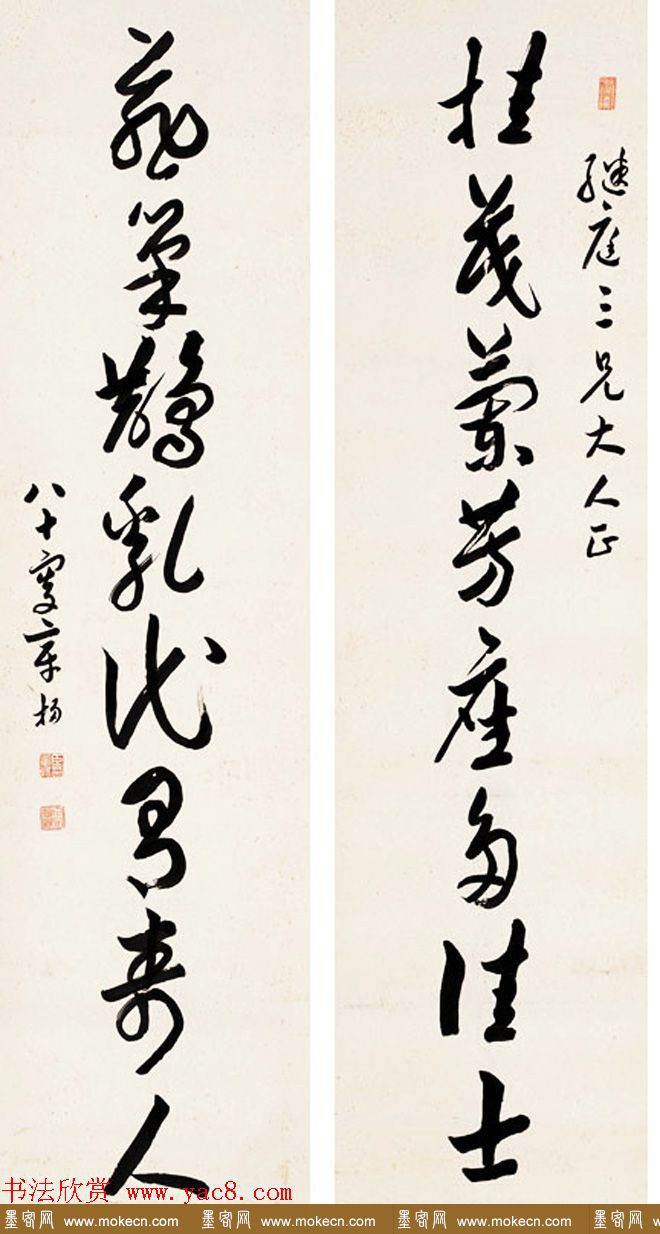 繼庭三兄大人正
桂茂蘭芳座多佳士
巢鵲乳代有壽人
八十叟
书法欣赏 www.yac8.com
墨客网 www.mokecn.com 墨客网 www.mokecn.com 墨客网 www.mokecn.com 墨客网